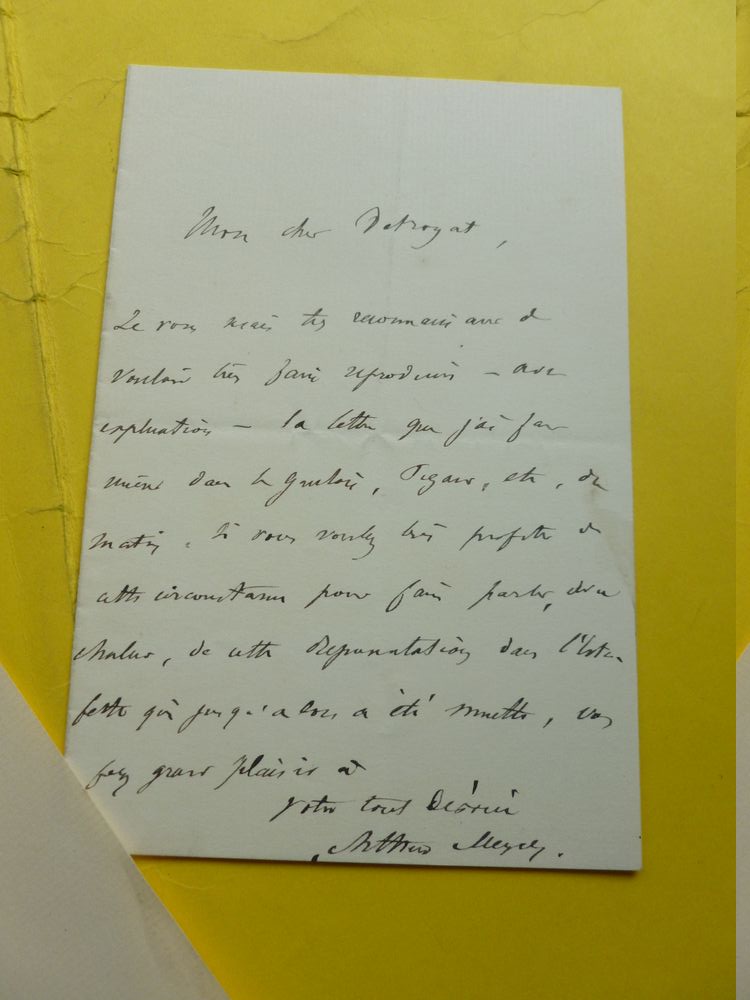 Mon cher Detroyat,
Je vous serais très reconnaissant de
vouloir bien faire reproduire – avec
explication – la lettre que j'ai fait
insérer dans le Gaulois, Figaro, etc, du
matin. Si vous voulez bien profiter de
cette circonstance pour faire parler, avec
chaleur, de cette Représentation dans l'Esta-
fette qui jusqu'alors a été muette, vous
ferez grand plaisir à
votre tout dévoué
Arthur Meyer.